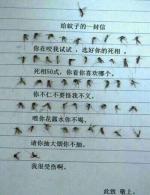 给蚊子的一封信
你在咬我试试，选好你的死相。
死相50式，你看你喜欢哪个。
你不仁不要怪我不义。
喂你花露水你不喝。
请你抽大烟你不抽。
我很受伤啊。
此致 敬上。